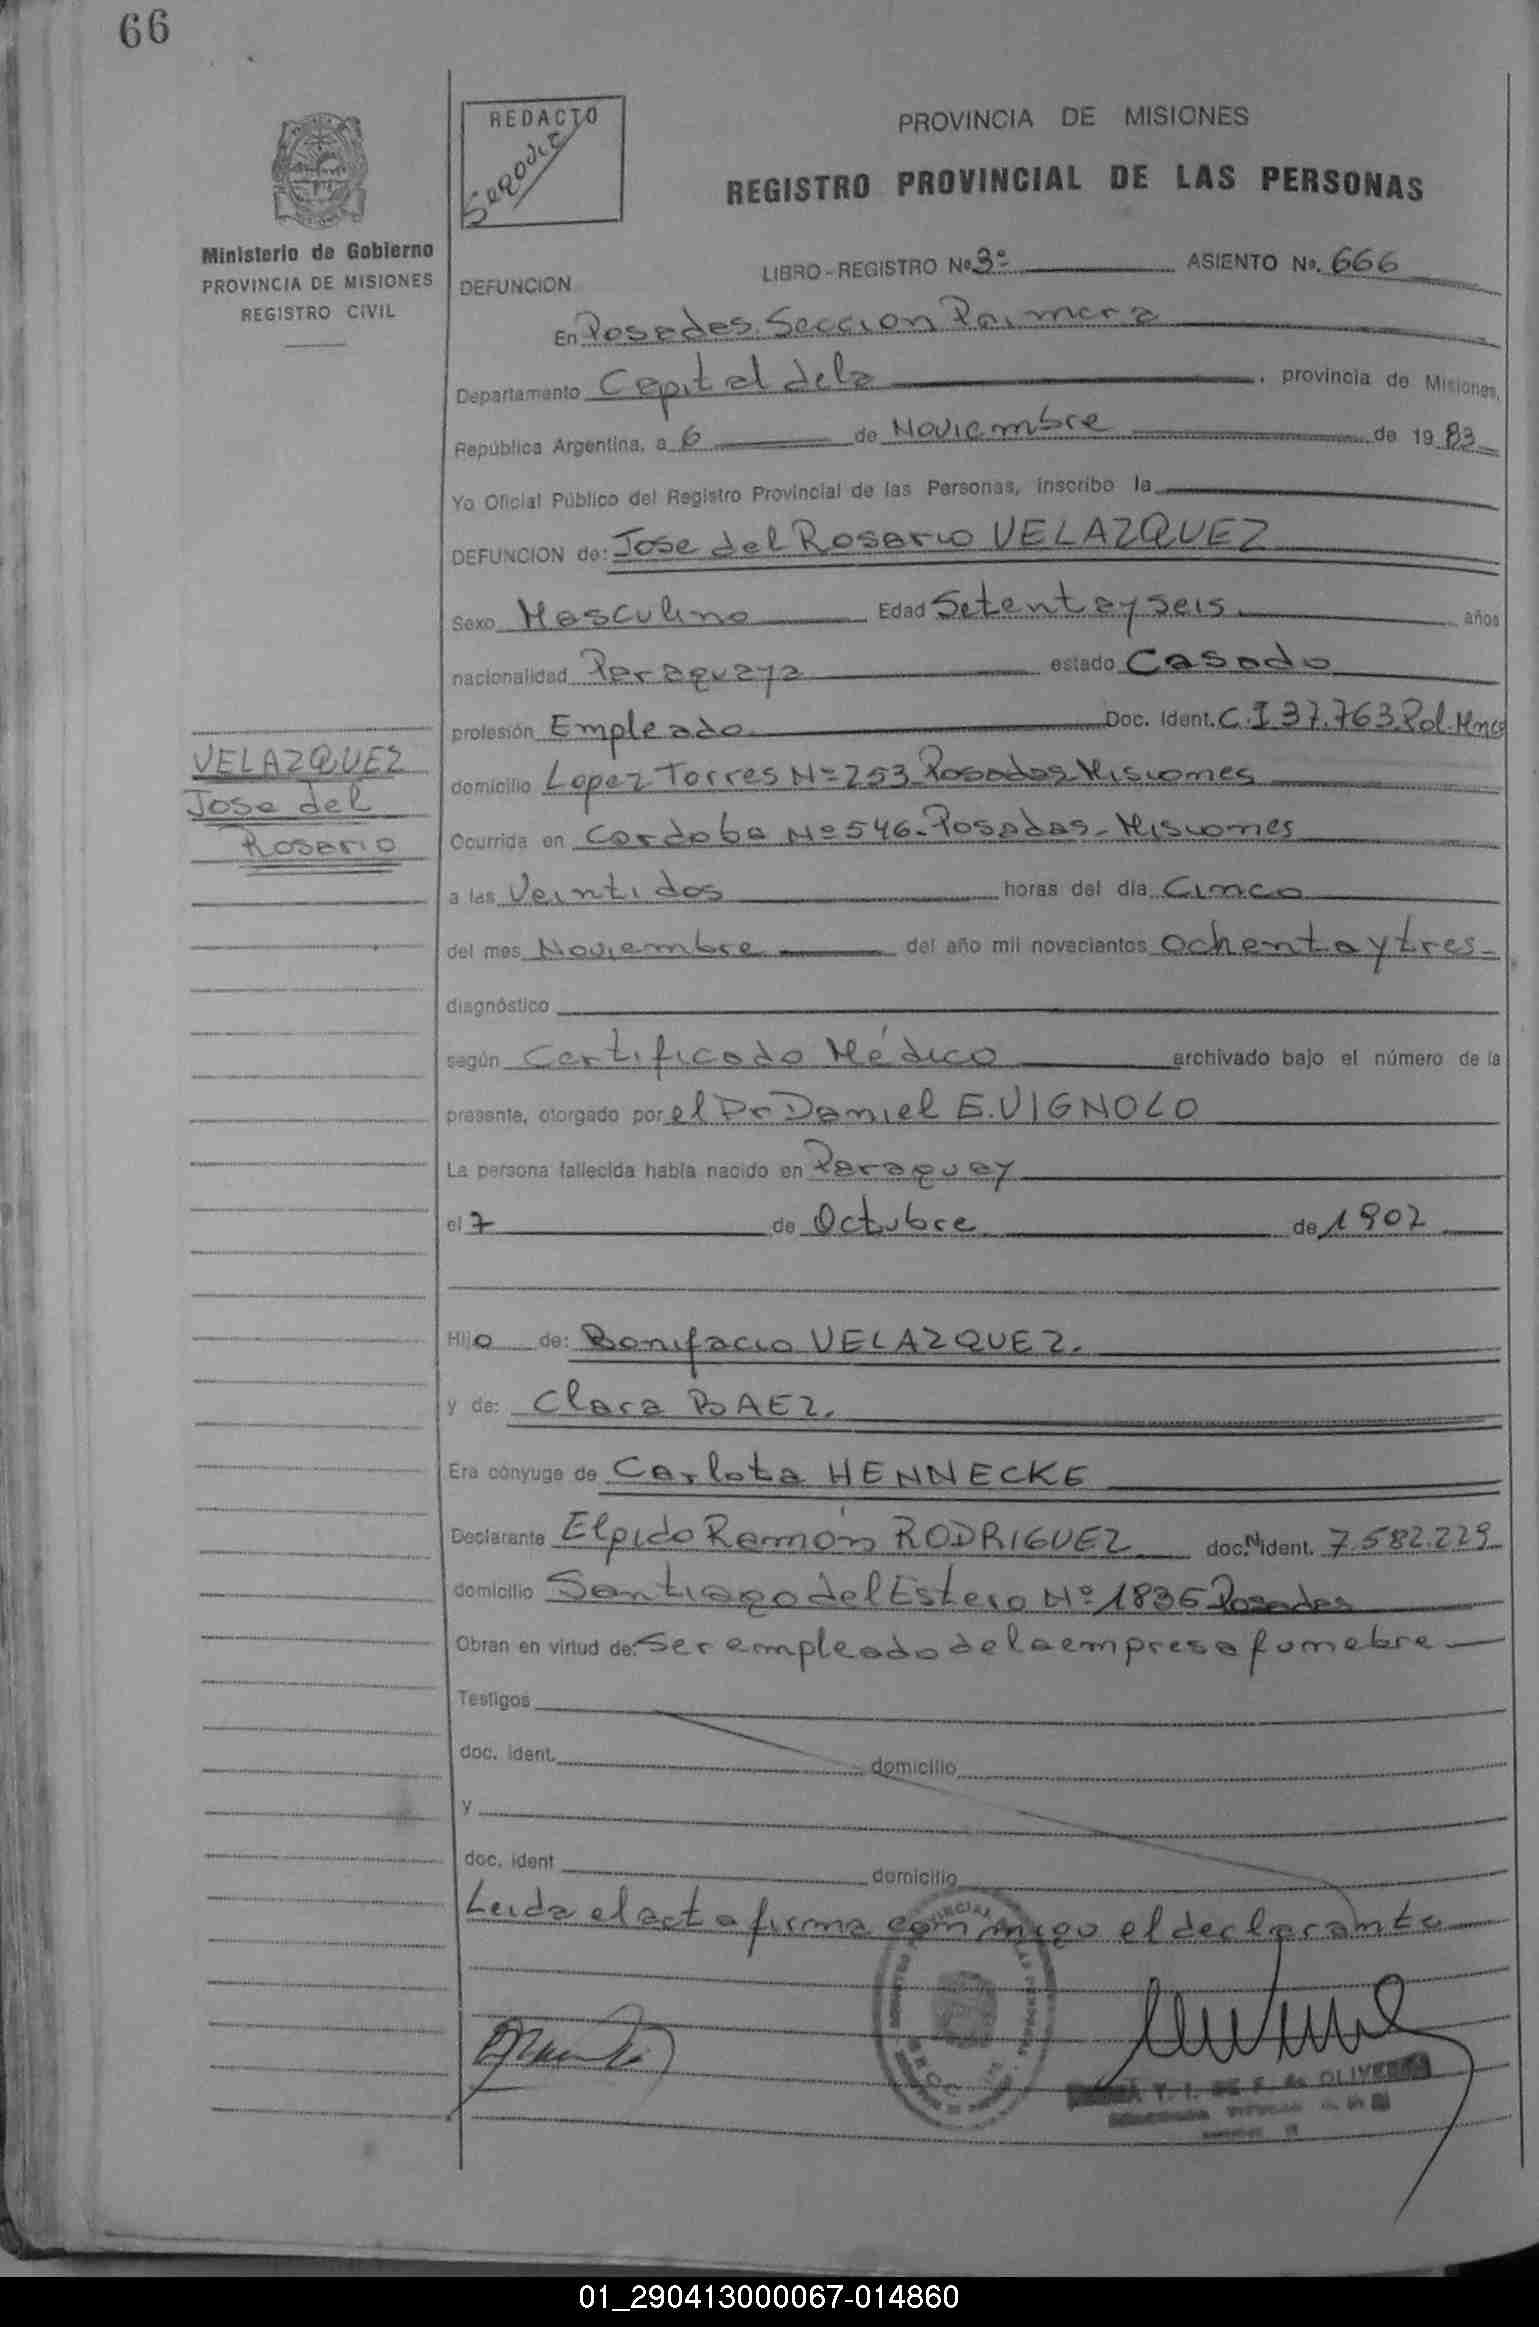 66
REDACTO
PROVINCIA DE MISIONES
REGISTRO PROVINCIAL DE LAS PERSONAS
Ministerio de Gobierno
PROVINCIA DE MISIONES
REGISTRO CIVIL
LIBRO-REGISTRO Nº 3º ASIENTO Nº. 666
DEFUNCION
En Posadas. Seccion Primera
Departamento Capital de la , provincia de Misiones,
República Argentina, a 6 de Noviembre de 1983
Yo Oficial Público del Registro Provincial de las Personas, inscribo la
DEFUNCION de: Jose del Rosario VELAZQUEZ
Sexo Masculino Edad Setenta y seis años
nacionalidad Paraguaya estado Casado
profesión Empleado Doc. Ident. C.I 37.763 Pol. Mnes
VELAZQUEZ
Jose del
Rosario
domicilio Lopez Torres Nº 253 Posadas Misiones
Ocurrida en Cordoba Nº 546 - Posadas - Misiones
a las Veintidos horas del día Cinco
del mes Noviembre del año mil novecientos Ochenta y tres -
diagnóstico
según Certificado Médico archivado bajo el número de la
presente, otorgado por el Dr Daniel E. VIGNOLO
La persona fallecida había nacido en Paraguay
el 7 de Octubre de 1907
Hijo de: Bonifacio VELAZQUEZ.
y de: Clara BAEZ.
Era cónyuge de Carlota HENNECKE
Declarante Elpido Ramón RODRIGUEZ doc. Nident. 7.582.229
domicilio Santiago del Estero Nº 1836 Posadas
Obran en virtud de: Ser empleado de la empresa funebre
Testigos
doc. ident. domicilio
y
doc. ident domicilio
Leida el acta firma conmigo el declarante
01_290413000067-014860